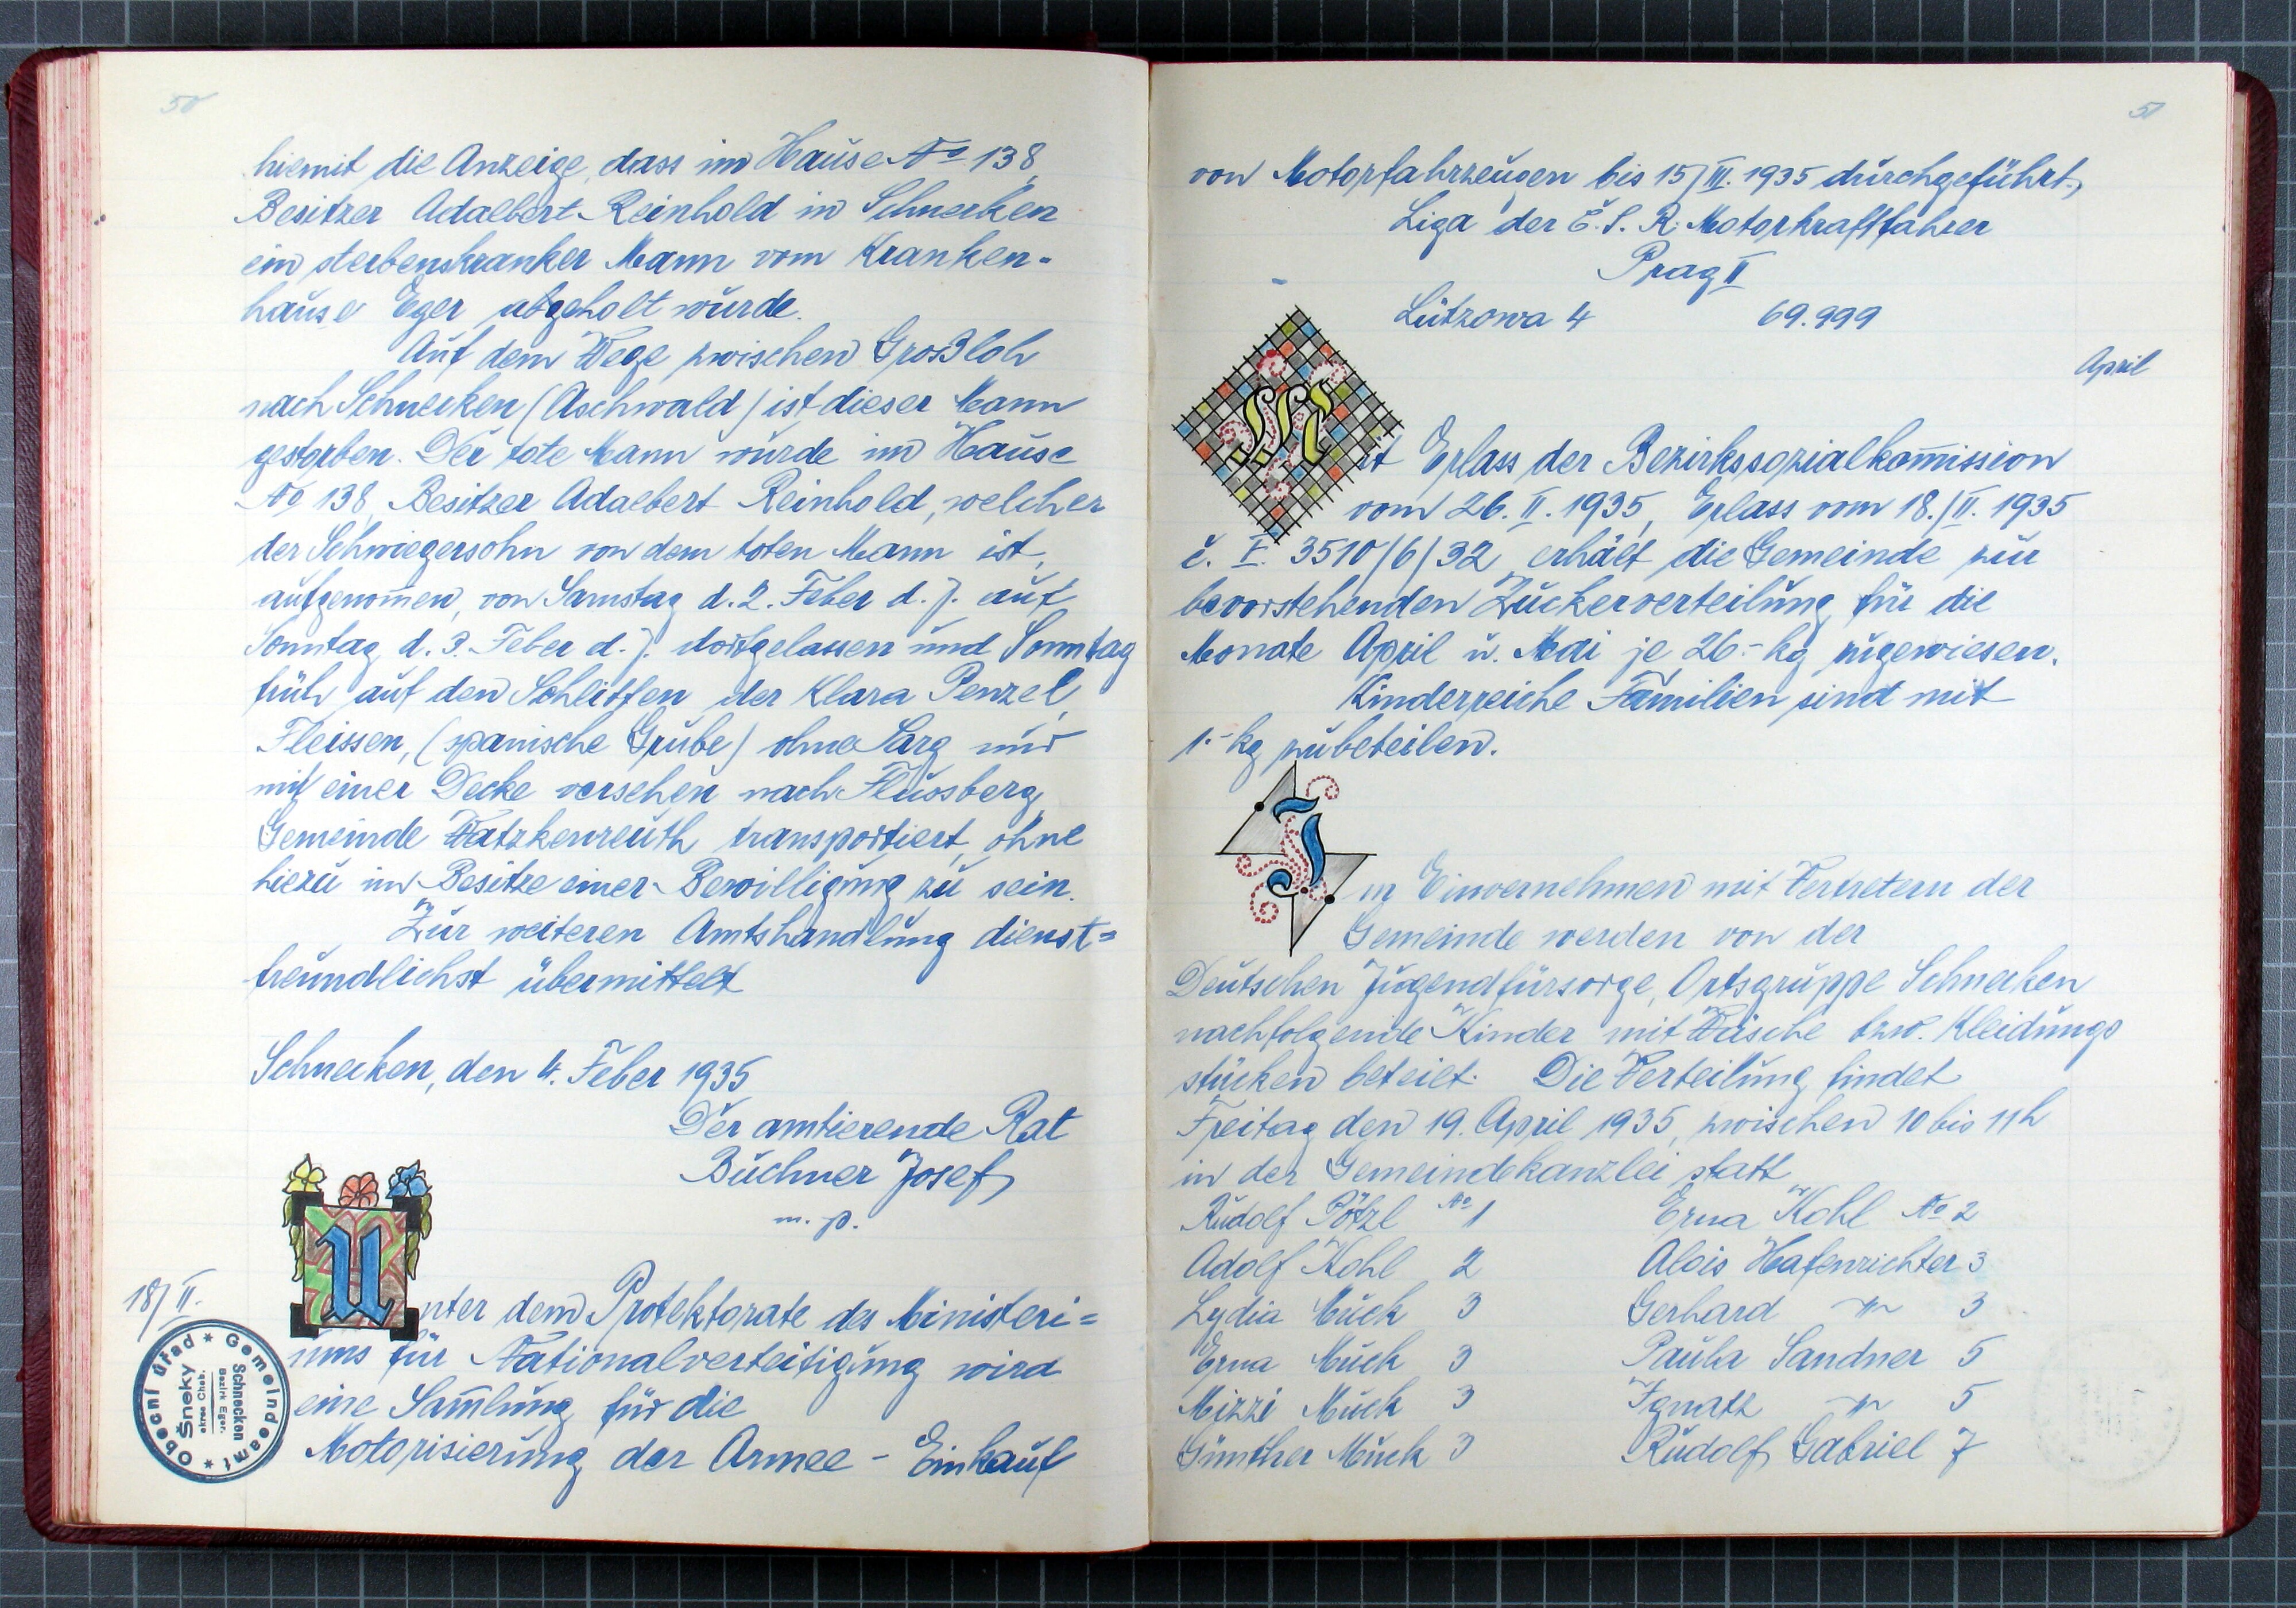 50
hiemit die Anzeige, dass im Hause No 138,
Besitzer Adalbert Reinhold in Schnecken
ein sterbenskranker Mann vom Kranken-
hause Eger abgeholt wurde.
Auf dem Wege zwischen Grossloh
nach Schnecken (Aschwald) ist dieser Mann
gestorben. Der tote Mann wurde im Hause
No 138, Besitzer Adalbert Reinhold, welcher
der Schwiegersohn von dem toten Mann ist,
aufgenom̅en, von Samstag d. 2. Feber d. J. auf
Sonntag d. 3. Feber d. J. dortgelassen und Sonntag
früh auf den Schlitten der Klara Penzel,
Fleissen, (spanische Grube) ohne Sarg nur
mit einer Decke versehen nach Flussberg
Gemeinde Watzkenreuth transportiert, ohne
hiezu im Besitze einer Bewilligung zu sein.
Zur weiteren Amtshandlung dienst=
freundlichst übermittelt
Schnecken, den 4. Feber 1935
Der amtierende Rat
Buchner Josef
m. p.
18/II.
Unter dem Protektorate des Ministeri=
ums für Nationalverteitigung wird
eine Sam̅lung für die
Motorisierung der Armee - Einkauf
Obecní úřad * Gemeindeamt *
Šneky
okres Cheb.
Bezirk Eger.
Schnecken
51
von Motorfahrzeugen bis 15/III. 1935 durchgeführt.
Liga der Č. S. R. Motorkraftfahrer
Prag II
Lützowa 4 69.999
April
Mit Erlass der Bezirkssozialkom̅ission
vom 26. II. 1935, Erlass vom 18./II. 1935
č. I. 3510/6/32 erhält die Gemeinde zur
bevorstehenden Zuckerverteilung für die
Monate April u. Mai je 26.- kg zugewiesen.
Kinderreiche Familien sind mit
1.- kg zubeteilen.
Im Einvernehmen mit Vertretern der
Gemeinde werden von der
Deutschen Jugendfürsorge, Ortsgruppe Schnecken
nachfolgende Kinder mit Wäsche bzw. Kleidungs
stücken beteilt. Die Verteilung findet
Freitag den 19. April 1935, zwischen 10 bis 11h
in der Gemeindekanzlei statt
Rudolf Pötzl No 1 Erna Kohl No 2
Adolf Kohl 2 Alois Hafenrichter 3
Lydia Muck 3 Gerhard -"- 3
Erna Muck 3 Paula Sandner 5
Mizzi Muck 3 Ignatz -"- 5
Günther Muck 3 Rudolf Gabriel 7